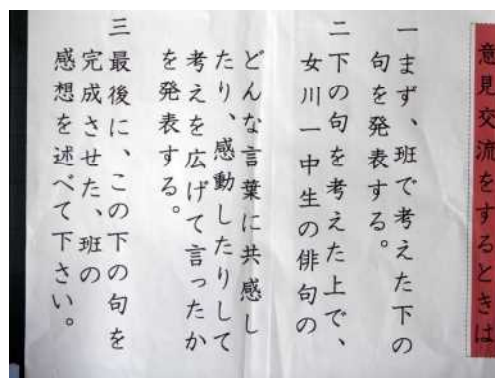 意見交流をするときは
一まず、班で考えた下の
句を発表する。
二下の句を考えた上で、
女川一中生の俳句の
どんな言葉に共感し
たり、感動したりして
考えを広げて言ったか
を発表する。
三最後に、この下の句を
完成させた、班の
感想を述べて下さい。